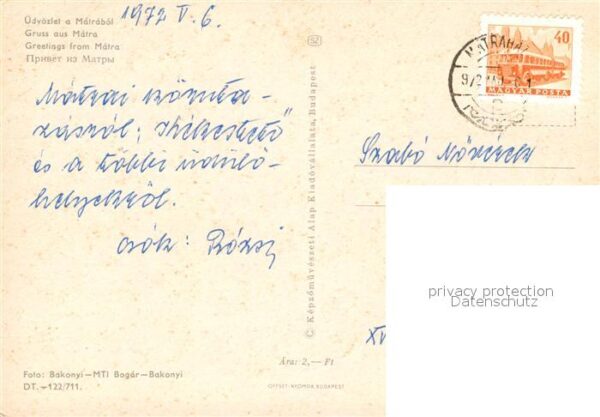 Üdvözlet a Mátrából
Gruss aus Mátra
Greetings from Mátra
Привет из Матры
1972 V. 6.
52
40
MAGYAR POSTA
MÁTRAHÁZ
Mátrai körúta-
zásról, Kékestető
és a többi üdülő-
helyekről.
csók: Rózsi
Szabó Nővérek
XV
privacy protection
Datenschutz
© Képzőművészeti Alap Kiadóvállalata, Budapest
Ára: 2,— Ft
Foto: Bakonyi—MTI Bogár—Bakonyi
DT.—122/711.
OFFSET-NYOMDA BUDAPEST